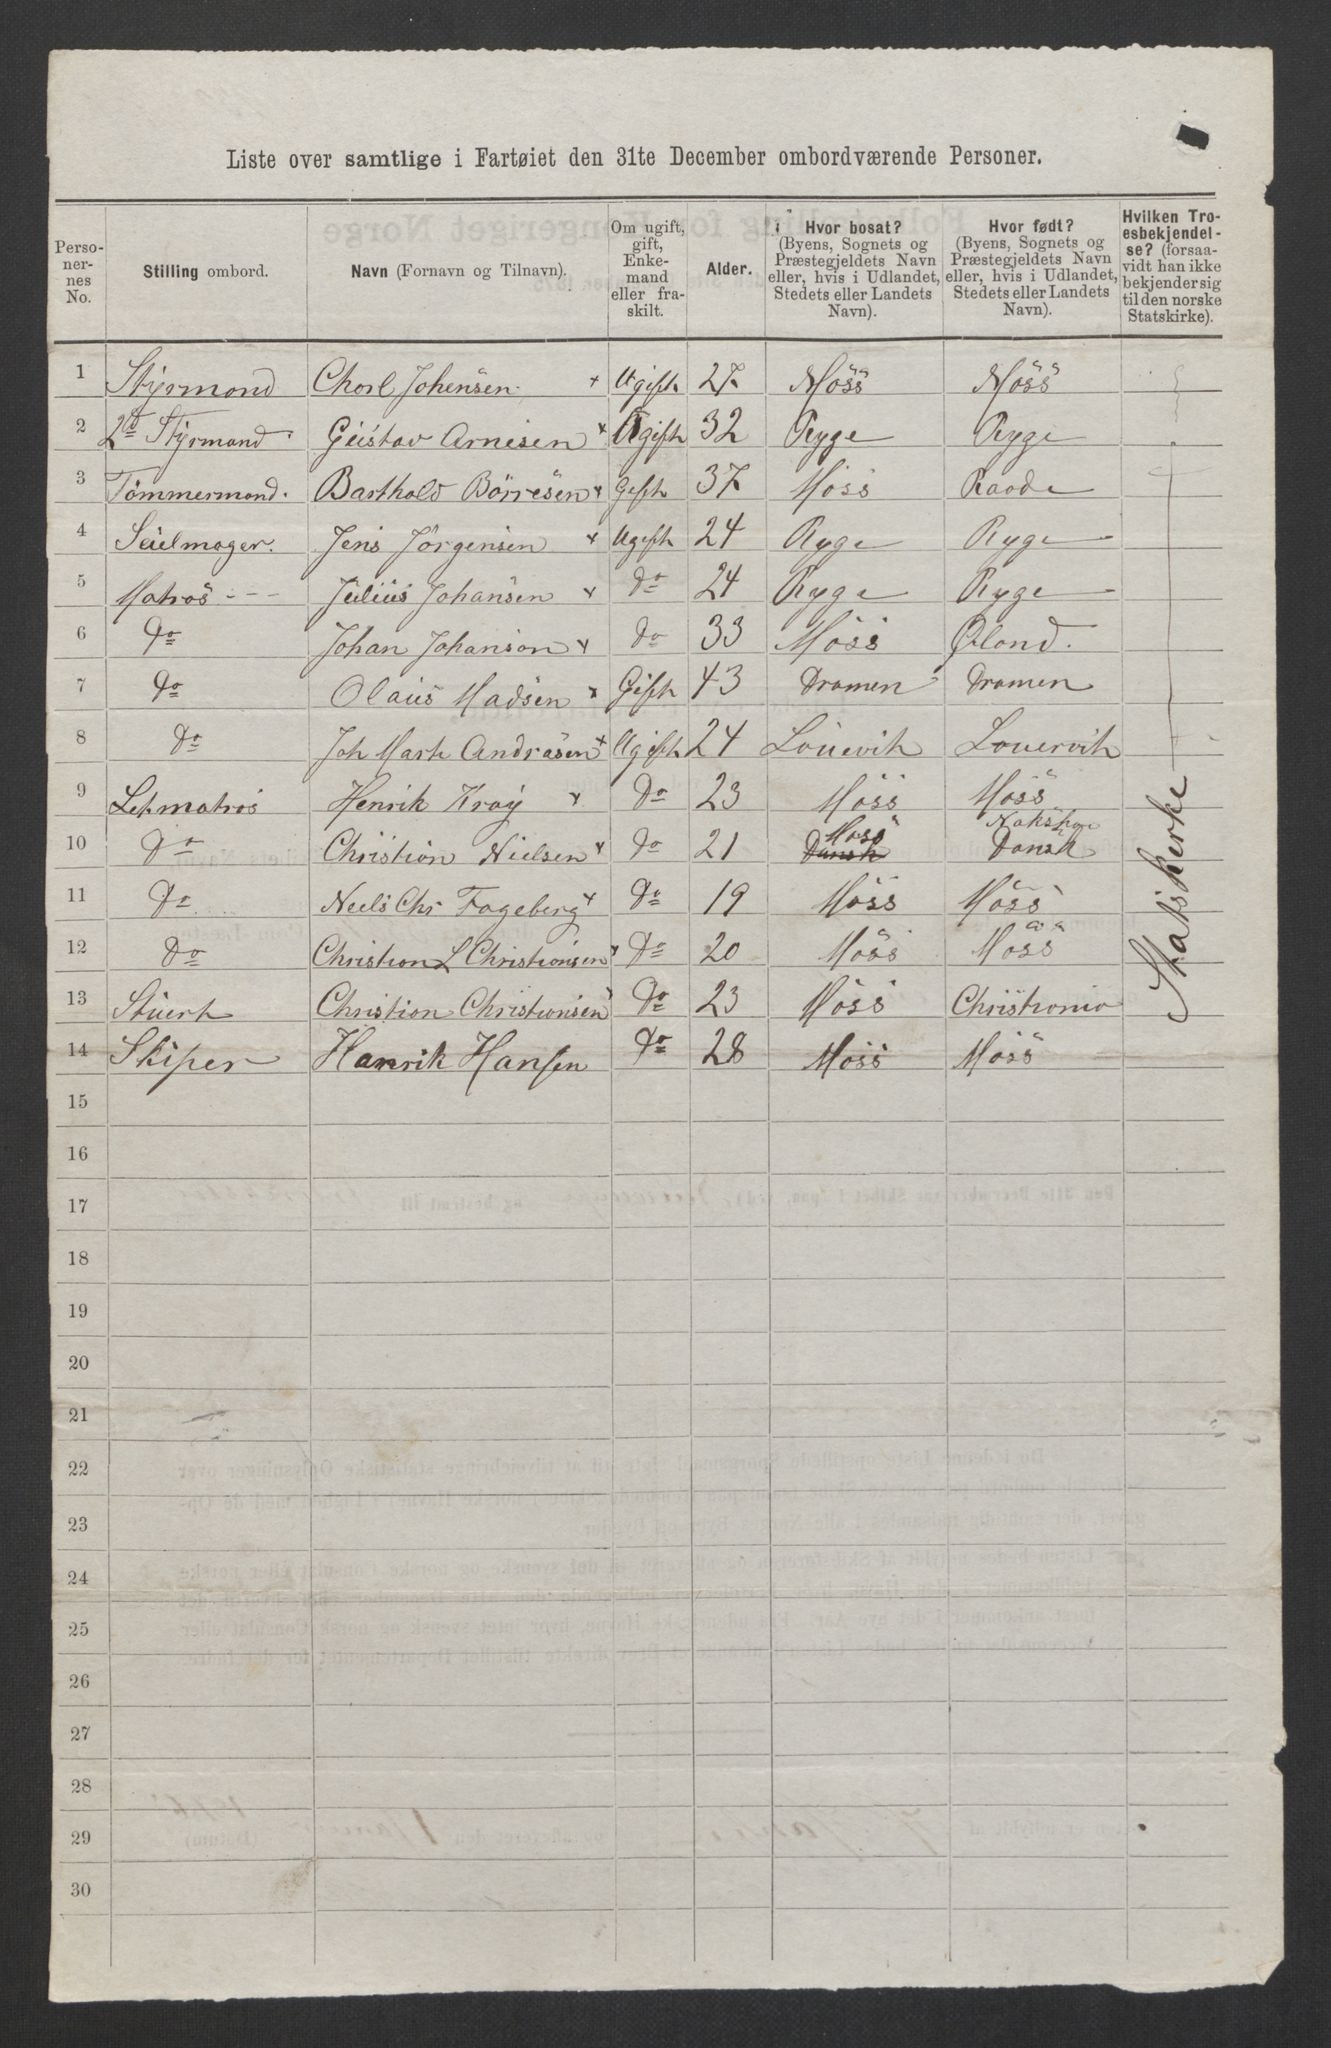 Liste over samtlige i Fartøiet den 31te December ombordværende Personer.
Perso-
ner-
nes
No.
Stilling ombord.
Navn (Fornavn og Tilnavn).
Om ugift,
gift,
Enke-
mand
eller fra-
skilt.
Alder.
Hvor bosat?
(Byens, Sognets og
Præstegjeldets Navn
eller, hvis i Udlandet,
Stedets eller Landets
Navn).
Hvor født?
(Byens, Sognets og
Præstegjeldets Navn
eller, hvis i Udlandet,
Stedets eller Landets
Navn).
Hvilken Tro-
esbekjendel-
se? (forsaa-
vidt han ikke
bekjender sig
til den norske
Statskirke).
1 Styrmand Charl Johensen Ugift 27 Moss Moss
2 2d Styrmand Gustav Arnesen Ugift 32 Ryge Ryge
3 Tömmermand. Barthold Börresen Gift 37 Moss Raade
4 Seielmager. Jens Jörgensen Ugift 24 Ryge Ryge
5 Matros Julius Johansen do 24 Ryge Ryge
6 Do Johan Johanson do 33 Moss Øland.
7 Do Olaus Madsen Gift 43 Dramen Dramen
8 Do Joh Mart Andrasen Ugift 24 Louevik Louervik
9 Letmatros Henrik Kray Do 23 Moss Moss
10 Do Christian Nielsen do 21 Dansk Moss Nakskov Dansk
11 Do Neels Chr Fageberg Do 19 Moss Moss
12 Do Christian L Christiansen Do 20 Moss Moss
13 Stuert Christian Christiansen Do 23 Moss Christiania
14 Skiper Hanrik Hansen Do 28 Moss Moss
Statskerke
15
16
17
18
19
20
21
22
23
24
25
26
27
28
29
30